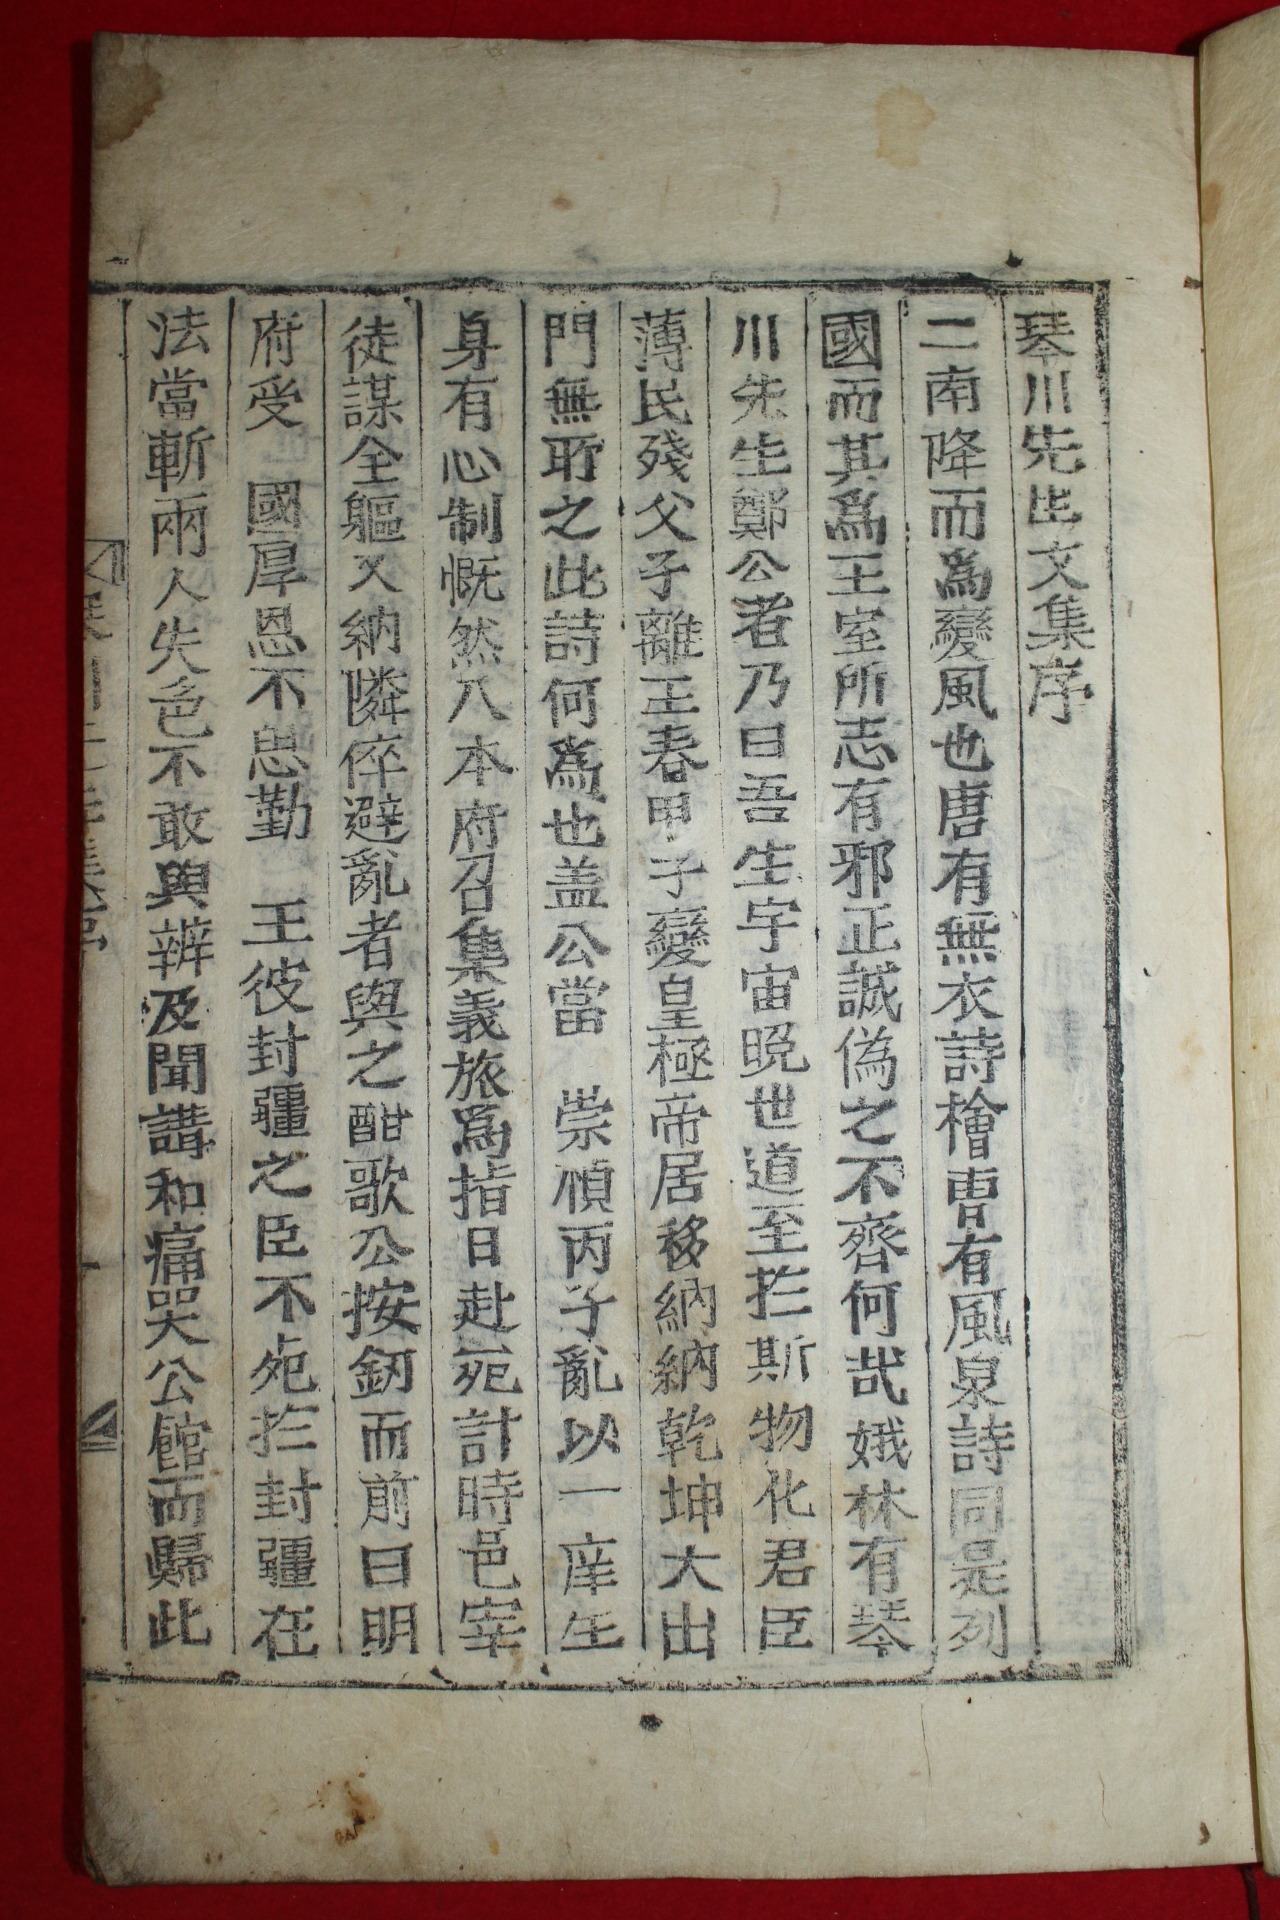 琴川先生文集序
二南降而爲變風也唐有無衣詩檜曹有風泉詩同是列
國而其爲王室所志有邪正誠僞之不齊何哉娥林有琴
川先生鄭公者乃曰吾生宇宙晩世道至於斯物化君臣
薄民殘父子離王春甲子變皇極帝居移納納乾坤大出
門無所之此詩何爲也盖公當 崇禎丙子亂以一庠生
身有心制慨然入本府召集義旅爲指日赴死計時邑宰
徒謀全軀又納隣倅避亂者與之酣歌公按釰而前曰明
府受 國厚恩不思勤 王彼封疆之臣不死於封疆在
法當斬兩人失色不敢與辨及聞講和痛哭公館而歸此